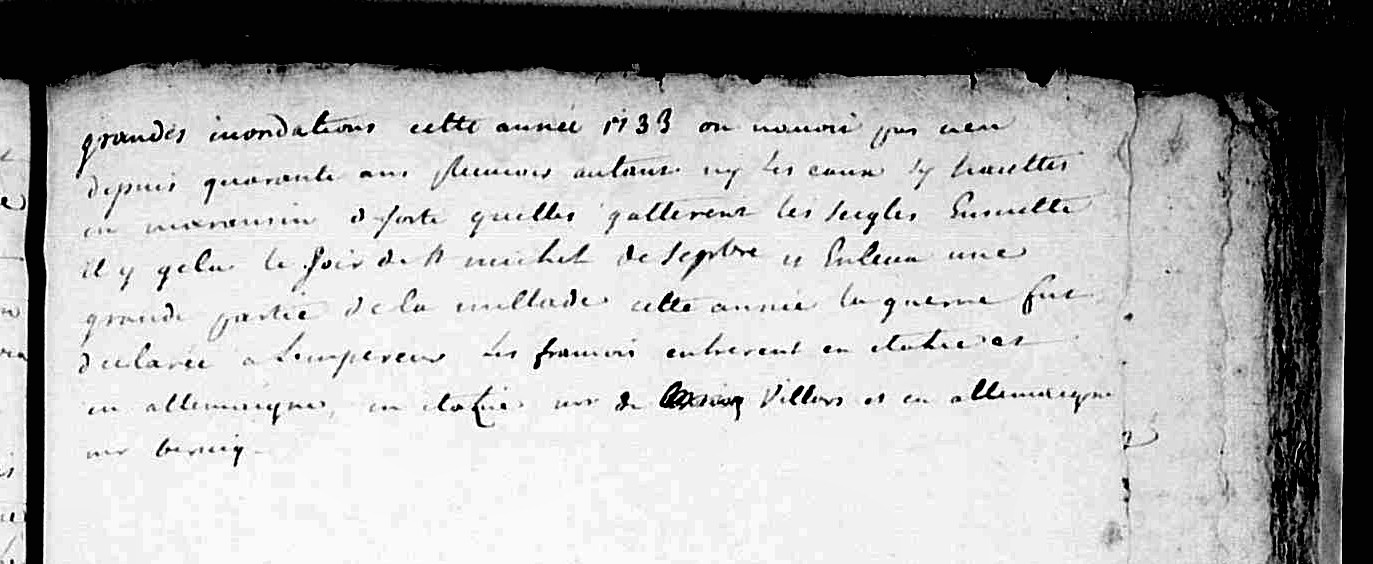 grandes inondations cette année 1733 on navoit pas veu
depuis quarante ans pleuvoir autant ny les eaux sy hautes
en maransin de sorte quelles gatterent les seigles Ensuitte
il y gela le soir de st michel de Septbre et Enleva une
grande partie de la millade cette année la guerre fut
declarée a Lempereur les francois entrerent en italie et
en allemaigne, en italie mr de Villars et en allemaigne
mr berviq